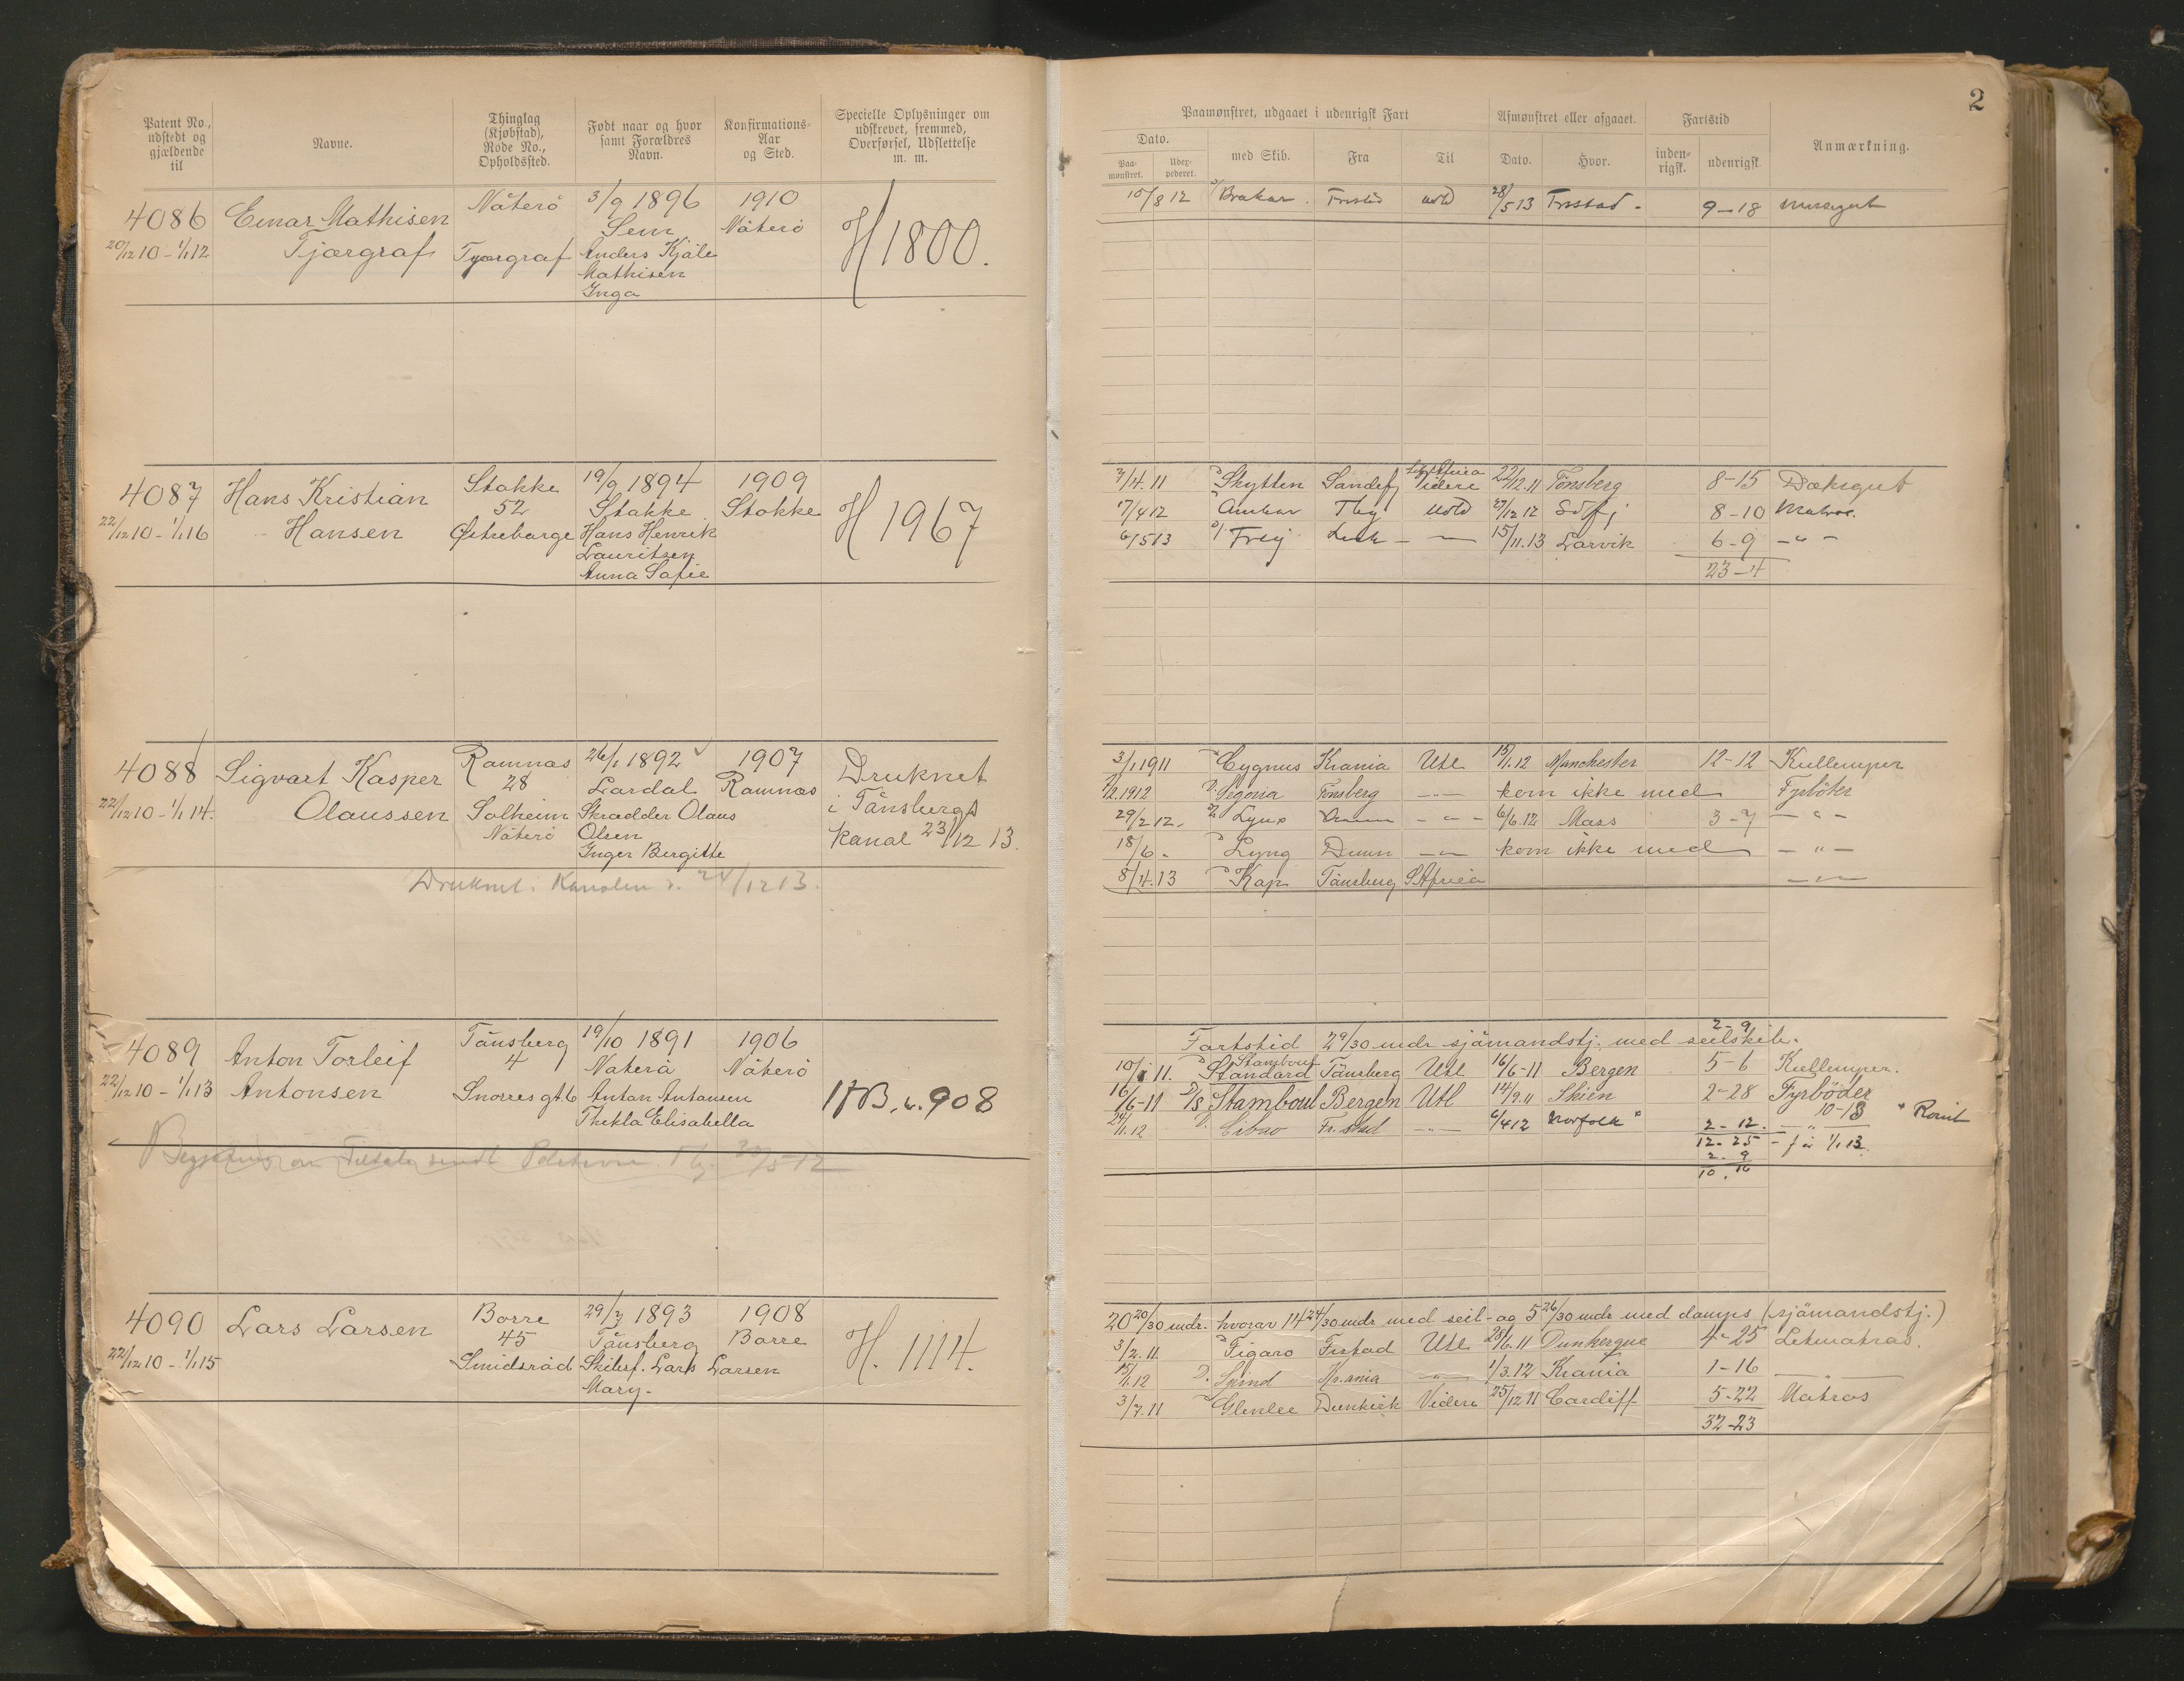 Patent No., udstedt og gjældende til
Navne.
Thinglag (Kjøbstad), Rode No., Opholdssted.
Født naar og hvor samt Forældres Navn.
Konfirmations-Aar og Sted.
Specielle Oplysninger om udskrevet, fremmed, Overførsel, Udslettelse m. m.
4086 Einar Mathisen Nøterø 3/9 1896 1910
20/12 10 - 1/1 12 Tjærgraf Tjærgraf Sem Nøterø H 1800.
Anders Kjøle
Mathisen
Inga
4087 Hans Kristian Stokke 19/9 1894 1909
22/12 10 - 1/1 16 Hansen 52 Stokke Stokke H 1967
Østreborge Hans Henrik
Lauritzen
Anna Sofie
4088 Sigvart Kasper Ramnæs 26/1 1892 1907 Druknet
22/12 10 - 1/1 14. Olaussen 28 Lardal Ramnæs i Tønsbergs
Solheim Skrædder Olaus kanal 23/12 13.
Nøterø Olsen
Inger Bergitte
Druknet i Kanalen d. 24/12 13.
4089 Anton Torleif Tønsberg 19/10 1891 1906
22/12 10 - 1/1 13 Antonsen 4 Nøterø Nøterø
Snorres gt. 6 Anton Antonsen 908
Thekla Elisabella
4090 Lars Larsen Borre 29/7 1893 1908
22/12 10 - 1/1 15 45 Tønsberg Borre H. 1114.
Smidsrød Skibsf. Lars Larsen
Mary.
2
Paamønstret, udgaaet i udenrigsk Fart
Afmønstret eller afgaaet.
Fartstid
Anmærkning.
Dato.
Paa-mønstret.
Udex-pederet.
med Skib.
Fra
Til
Dato.
Hvor.
inden-rigsk.
udenrigsk.
10/8 12 Brakar Frstad 28/5 13 Frstad - 9-18
7/4. 11 Skytten Sandefj Videre 22/12. 11 Tønsberg 8-15 Dæksgut
7/4 12 Tbg 27/12 12 8-10 Matros.
6/5 13 Frey 15/11. 13 Larvik 6-9 - " -
23-4
3/1 1911 Cygnus Krania Utl 15/1. 12 Manchester 12-12 Kullemper
1912 Segovia Tønsberg - " - kom ikke med Fyrbøter
29/2 12. - " - 6/6. 12 3-7 - " -
18/6 - kom ikke med - " -
8/4. 13 Kap Tønsberg S. Africa - " -
2-9
Fartstid 2 9/30 mdr sjømandstj. med seilskib.
Stamboul
10/1 11. Standard Tønsberg Utl 16/6-11 Bergen 5-6 Kullemper.
16/6-11 D/S Stamboul Bergen Utl 14/9. 11 Skien 2-28 Fyrbøder
10-13
24/11. 12 Fr. stad - " - 6/4 12 Norfolk 2-12.
12-25 1/1 13.
2-9
10. 16
20 20/30 mdr. hvorav 14 24/30 mdr med seil- og 5 26/30 mdr med damps (sjømandstj.)
3/2. 11 Figaro Frstad Utl 28/6. 11 Dunkerque 4-25 Letmatros.
15/1. 12 D. Spind Kr.ania - " - 1/3. 12 Krania 1-16 - " -
3/7. 11 Glenlee Dunkirk Videre 25/12 11 Cardiff 5-22 Matros
32-23